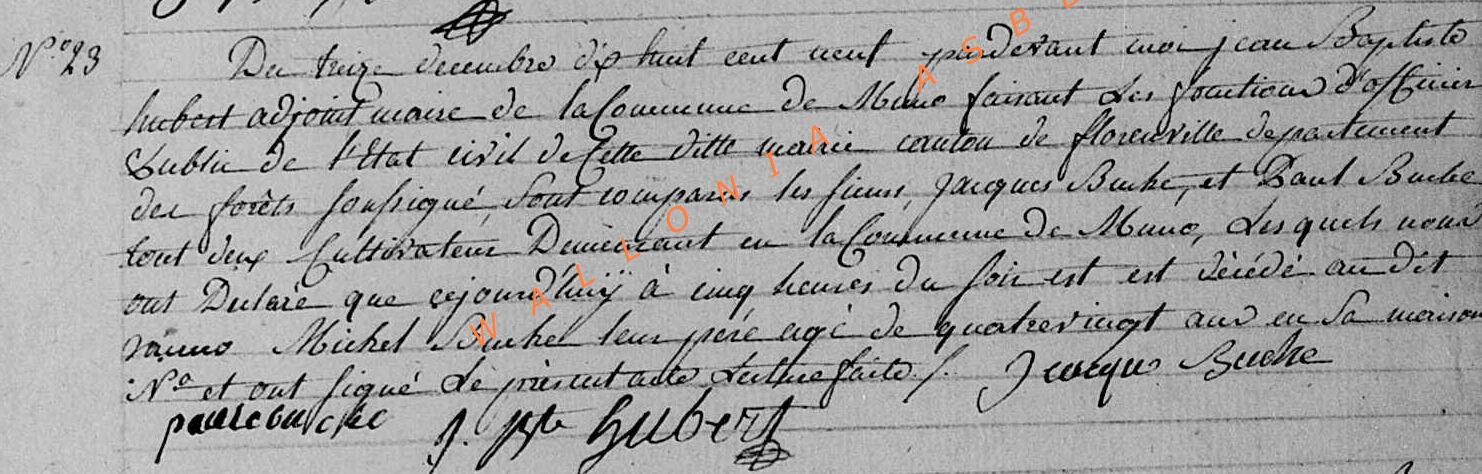 N.º 23
Du treize decembre dix huit cent neuf pardevant moi jean Baptiste
hubert adjoint maire de la Commune de Muno faisant les fonctions d'officier
Public de l'Etat civil de Cette ditte mairie canton de florenville departement
des forêts soussigné, sont comparus les sieurs, Jacques Buche, et Paul Buche
tout deux Cultivateur Demeurant en la Commune de Muno, Lesquels nous
ont Declaré que cejourd'huÿ à cinq heures du soir est est décédé au dit
Muno Michel Buche leur père agé de quatrevingt ans en sa maison
Nº et ont signé le présent acte Lecture faite /. Jacque Buche
paule buche J. Bte Hubert
WALLONIA ASB